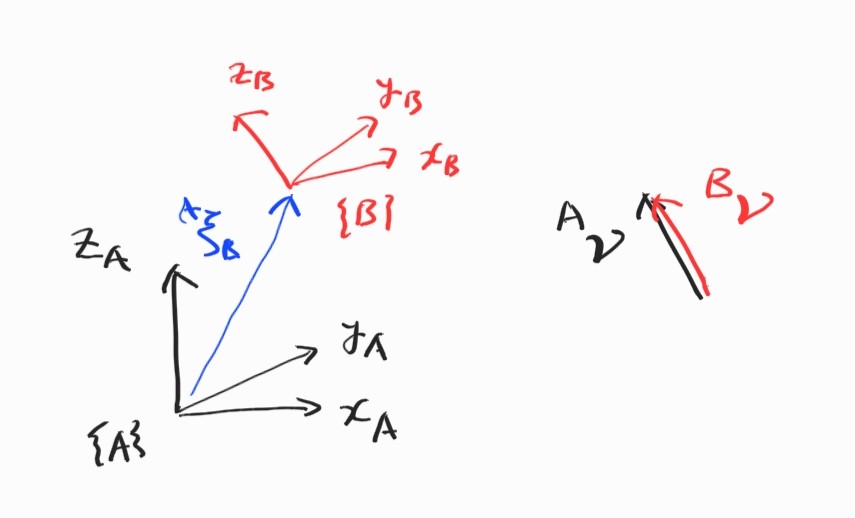 z_B
y_B
x_B
{B}
^Aξ_B
z_A
y_A
x_A
{A}
^Aν
^Bν